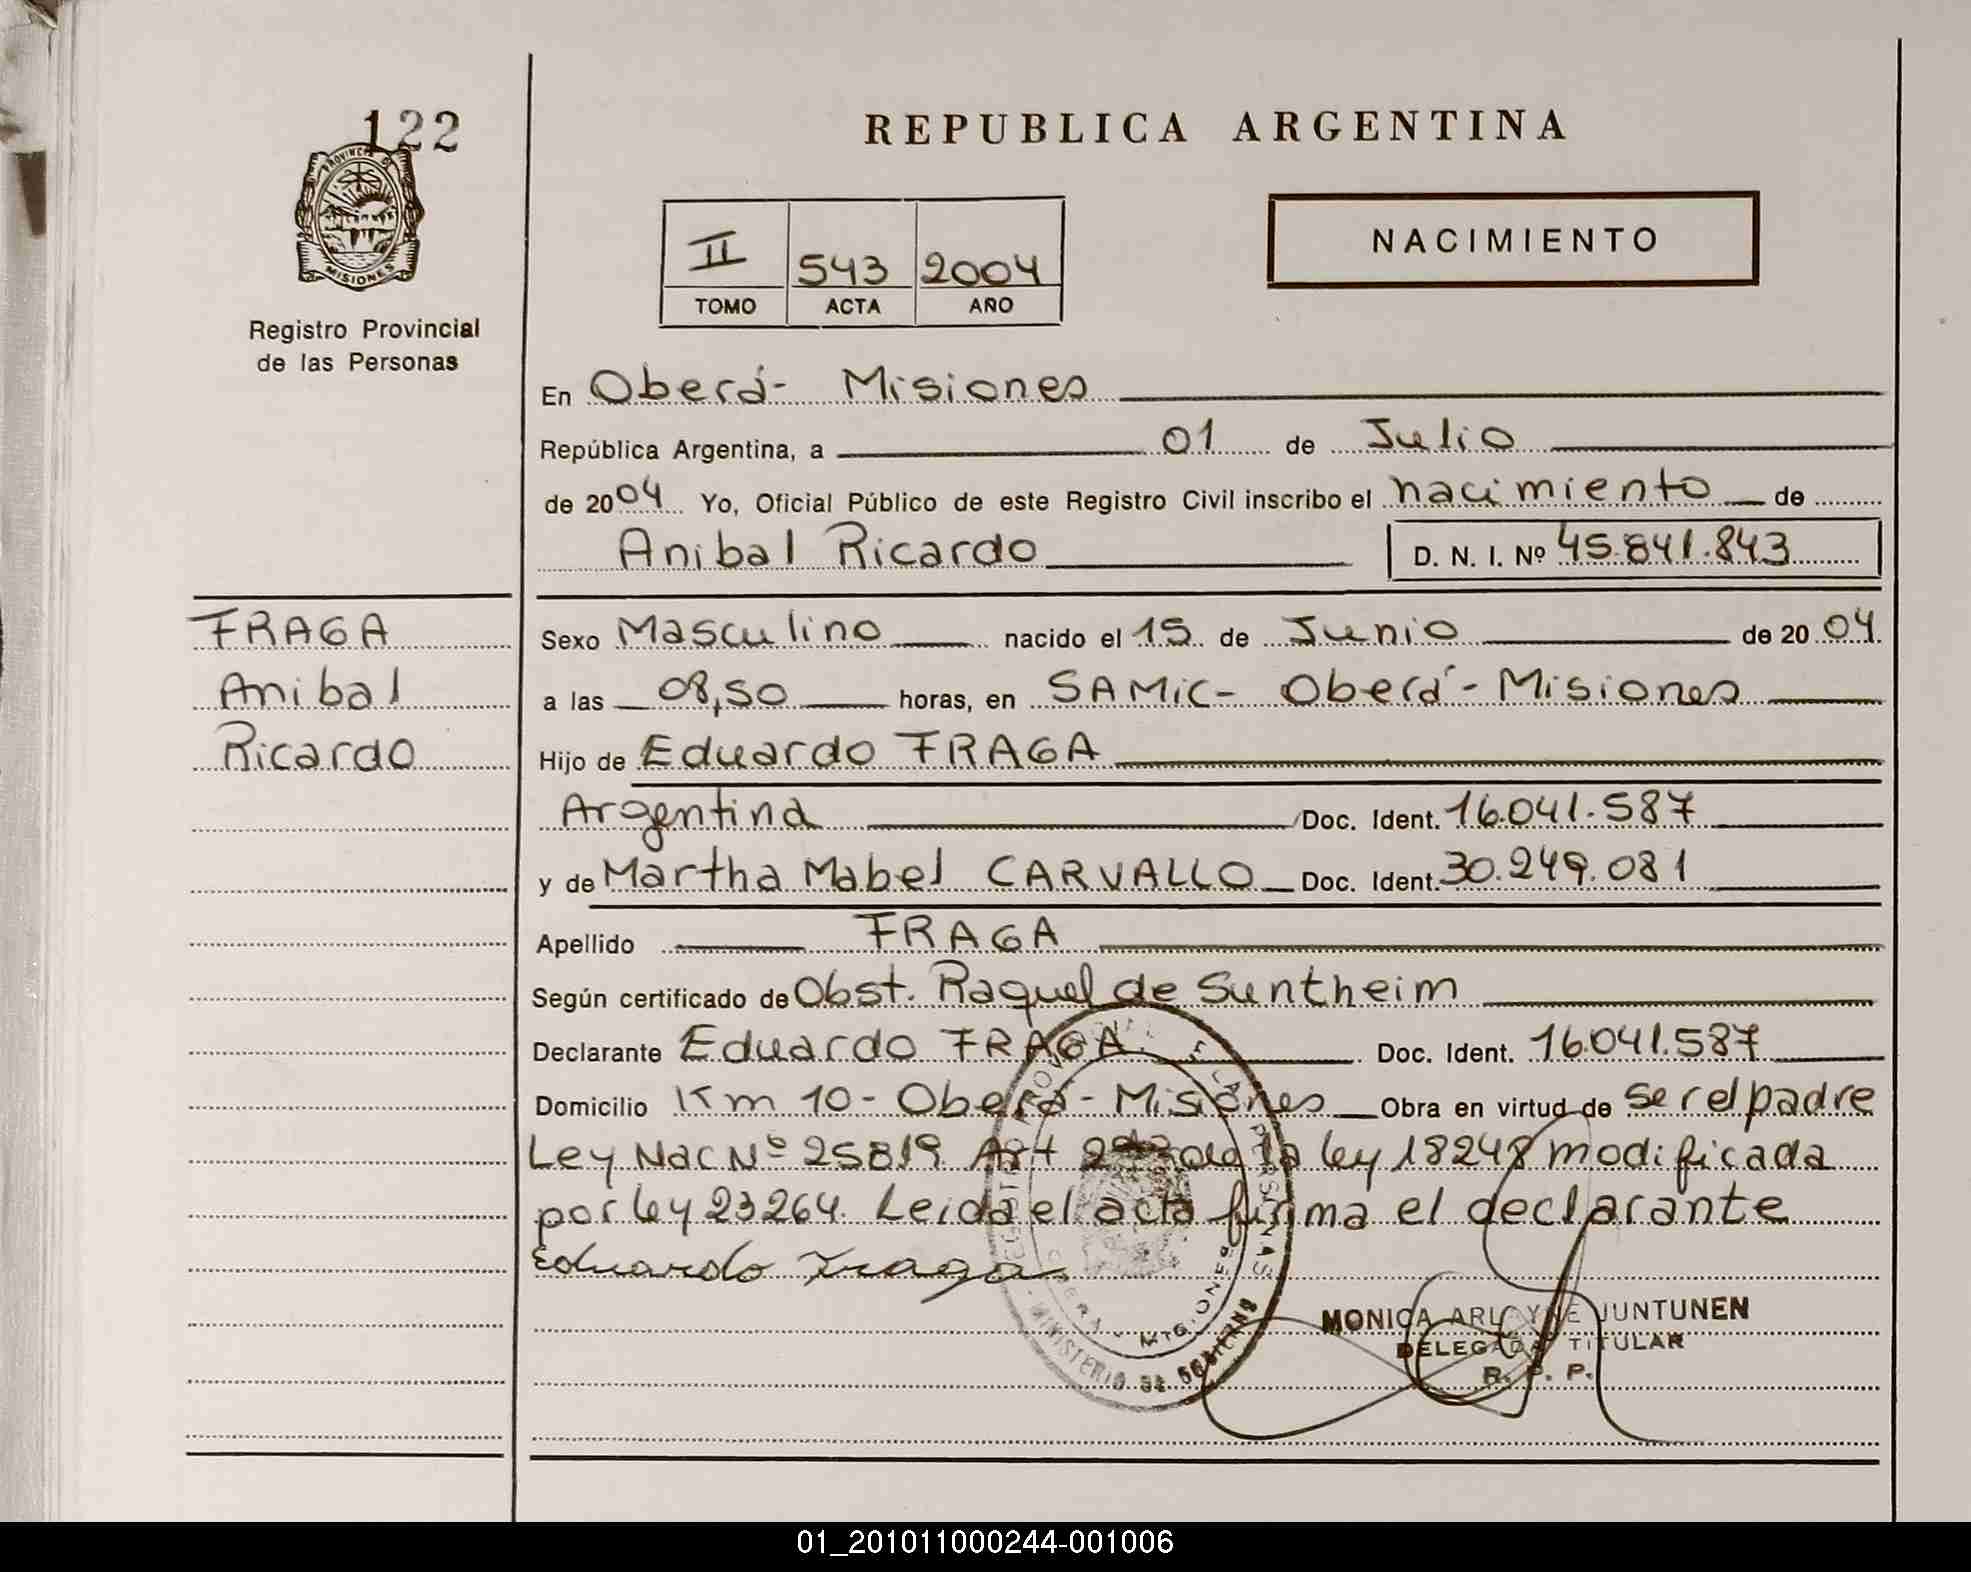 122
REPUBLICA ARGENTINA
PROVINCIA DE
MISIONES
Registro Provincial
de las Personas
II 543 2004
TOMO ACTA AÑO
NACIMIENTO
En Oberá- Misiones
República Argentina, a 01 de Julio
de 2004 Yo, Oficial Público de este Registro Civil inscribo el nacimiento de
Anibal Ricardo D. N. I. Nº 45.841.843
FRAGA
Anibal
Ricardo
Sexo Masculino nacido el 15 de Junio de 2004.
a las 08,50 horas, en SAMIC- Oberá- Misiones
Hijo de Eduardo FRAGA
Argentina Doc. Ident. 16.041.587
y de Martha Mabel CARVALLO Doc. Ident. 30.249.081
Apellido FRAGA
Según certificado de Obst. Raquel de Suntheim
Declarante Eduardo FRAGA. Doc. Ident. 16.041.587
Domicilio Km 10- Oberá- Misiones Obra en virtud de ser el padre
Ley Nac Nº 25819. Art 2º de la ley 18248 modificada
por ley 23264. Leida el acta firma el declarante
Eduardo Fraga
MONICA ARLOYNE JUNTUNEN
DELEGADA TITULAR
R. P. P.
MINISTERIO DE GOBIERNO
01_201011000244-001006